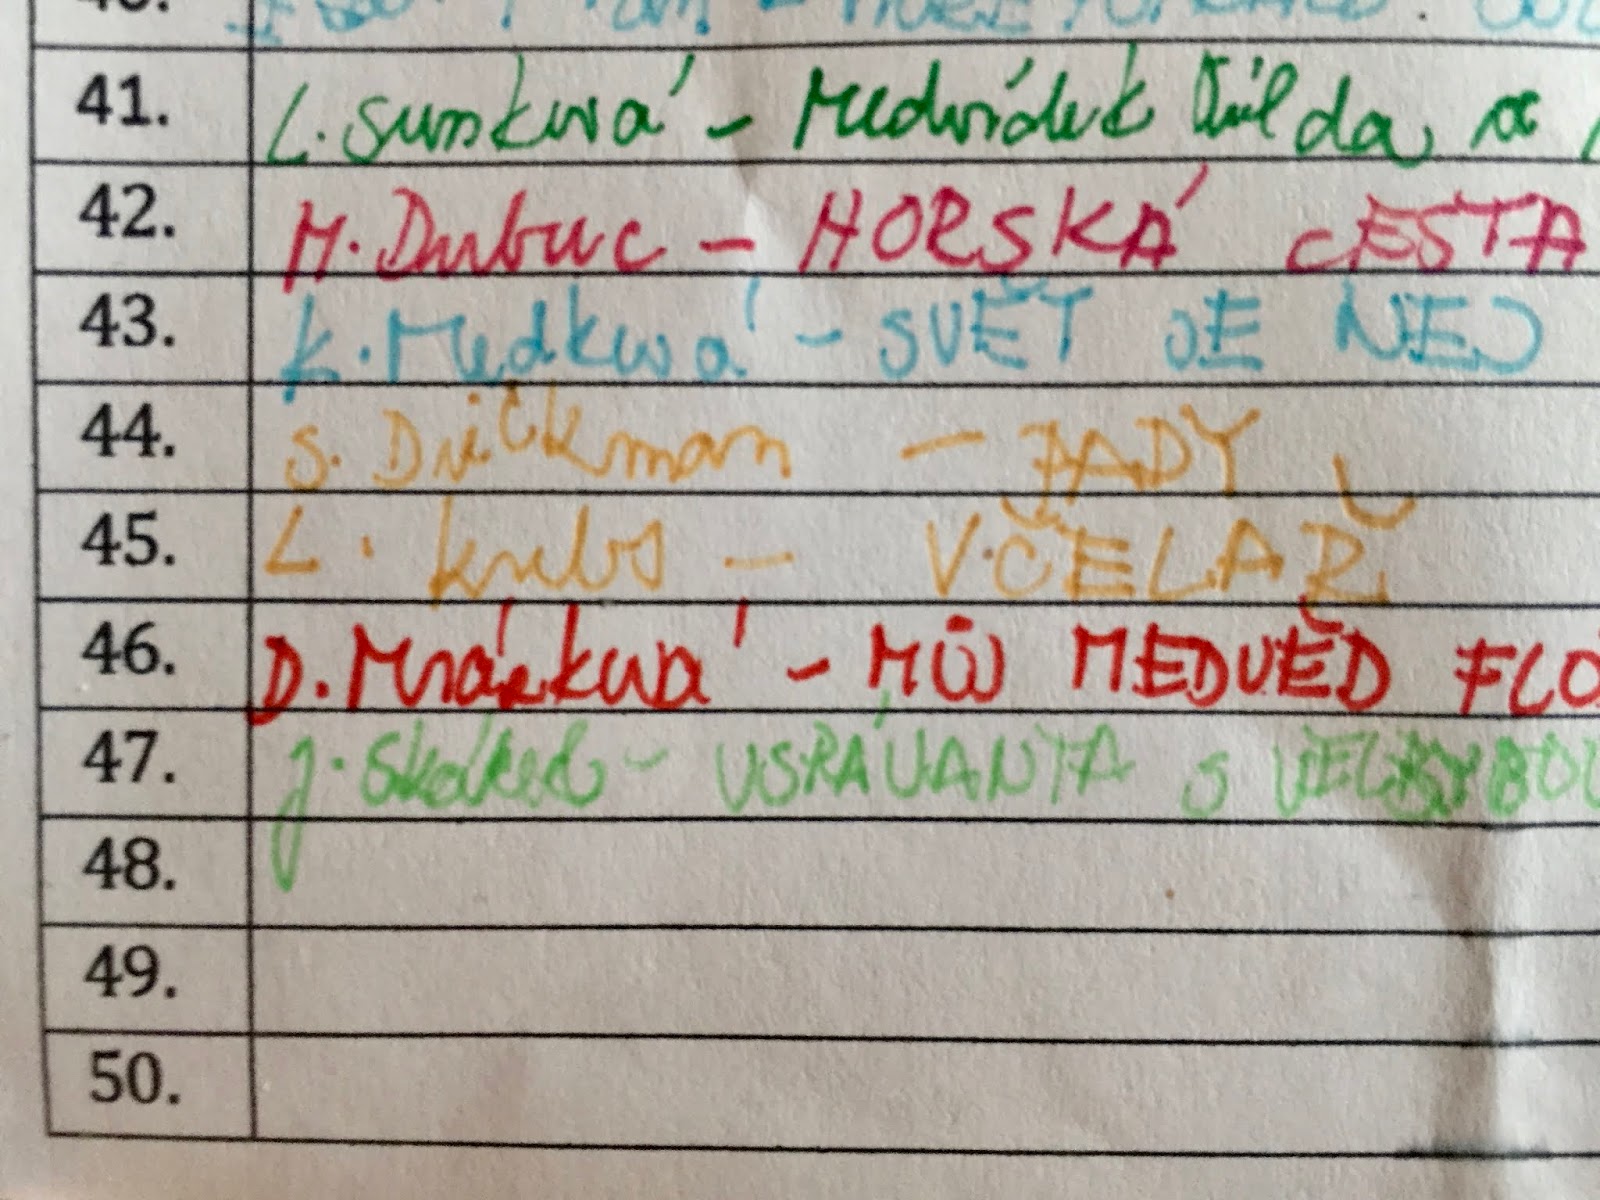 40.
41. L. Sunková - Medvídek Vilda a
42. M. Dubuc - HORSKÁ CESTA
43. K. Medková - SVĚT JE NEJ
44. S. Dieckman - JADY
45. L. Krebs - VČELAŘ
46. D. Mrázková - MŮJ MEDVĚD FLÓ
47. J. Skácel - USPÁVANKA S VELRYBOU
48.
49.
50.